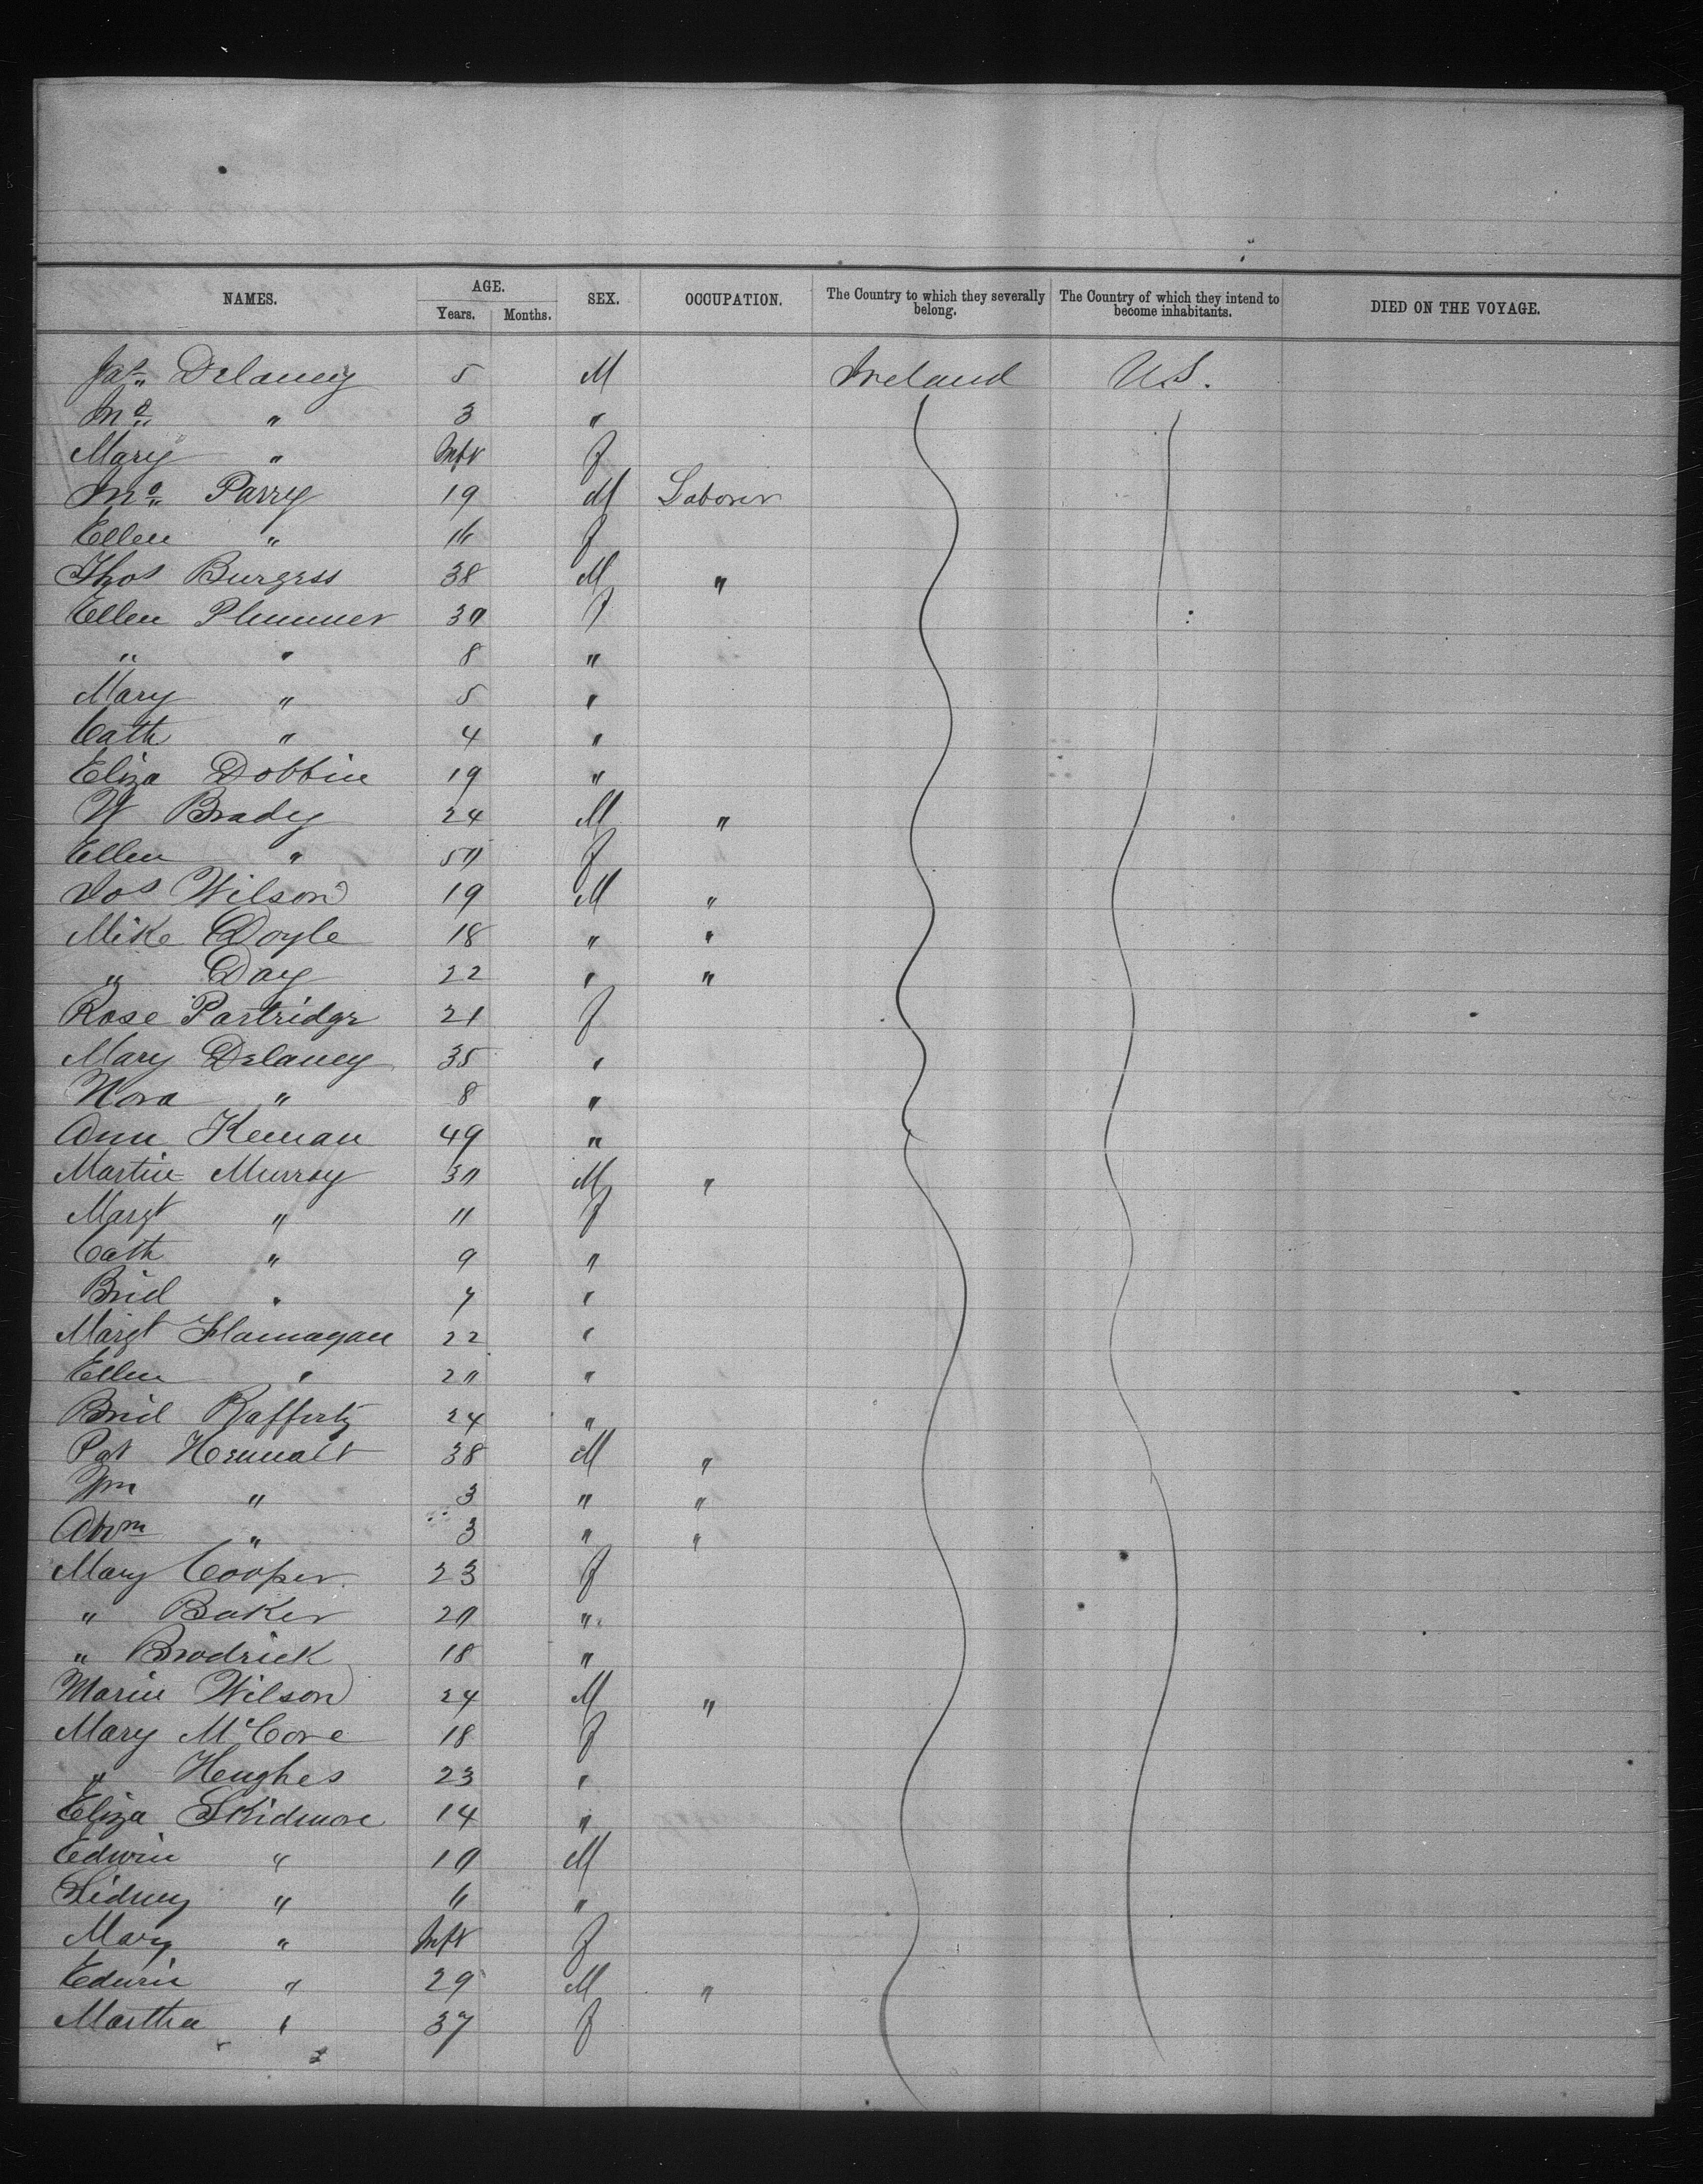 NAMES. AGE. SEX. OCCUPATION. The Country to which they severally belong. The Country of which they intend to become inhabitants. DIED ON THE VOYAGE.
Years. Months.
Jas Delaney 5 M Ireland U.S.
" 3 "
Mary " Inft f
Parry 19 M Laborer
Ellen " f
Thos Burgess 38 M "
Ellen Plummer 30 f
" " 8 "
Mary " 5 "
Cath " 4 "
Eliza Dobbin 19 "
W Brady 24 M "
Ellen " 50 f
Jos Wilson 19 M "
Mike Doyle 18 " "
" Day 22 " "
Rose Partridge 21 f
Mary Delaney 35 "
Nora " 8 "
Ann Kernan 49 "
Martin Murray 30 M "
Margt " 11 f
Cath " 9 "
Brid " 7 "
Margt Flannagan 22 "
Ellen " 20 "
Brid Rafferty 24 "
Pat 38 M "
Wm " 3 " "
Abm " 3 " "
Mary Cooper. 23 f
" Baker 20 "
" Brodrick 18 "
Wilson 24 M "
Mary 18 f
" Hughes 23 "
Eliza Skidmore 14 "
Edwin " 10 M
Sidney " "
Mary " Inft f
Edwin " 29 M "
Martha " 37 f